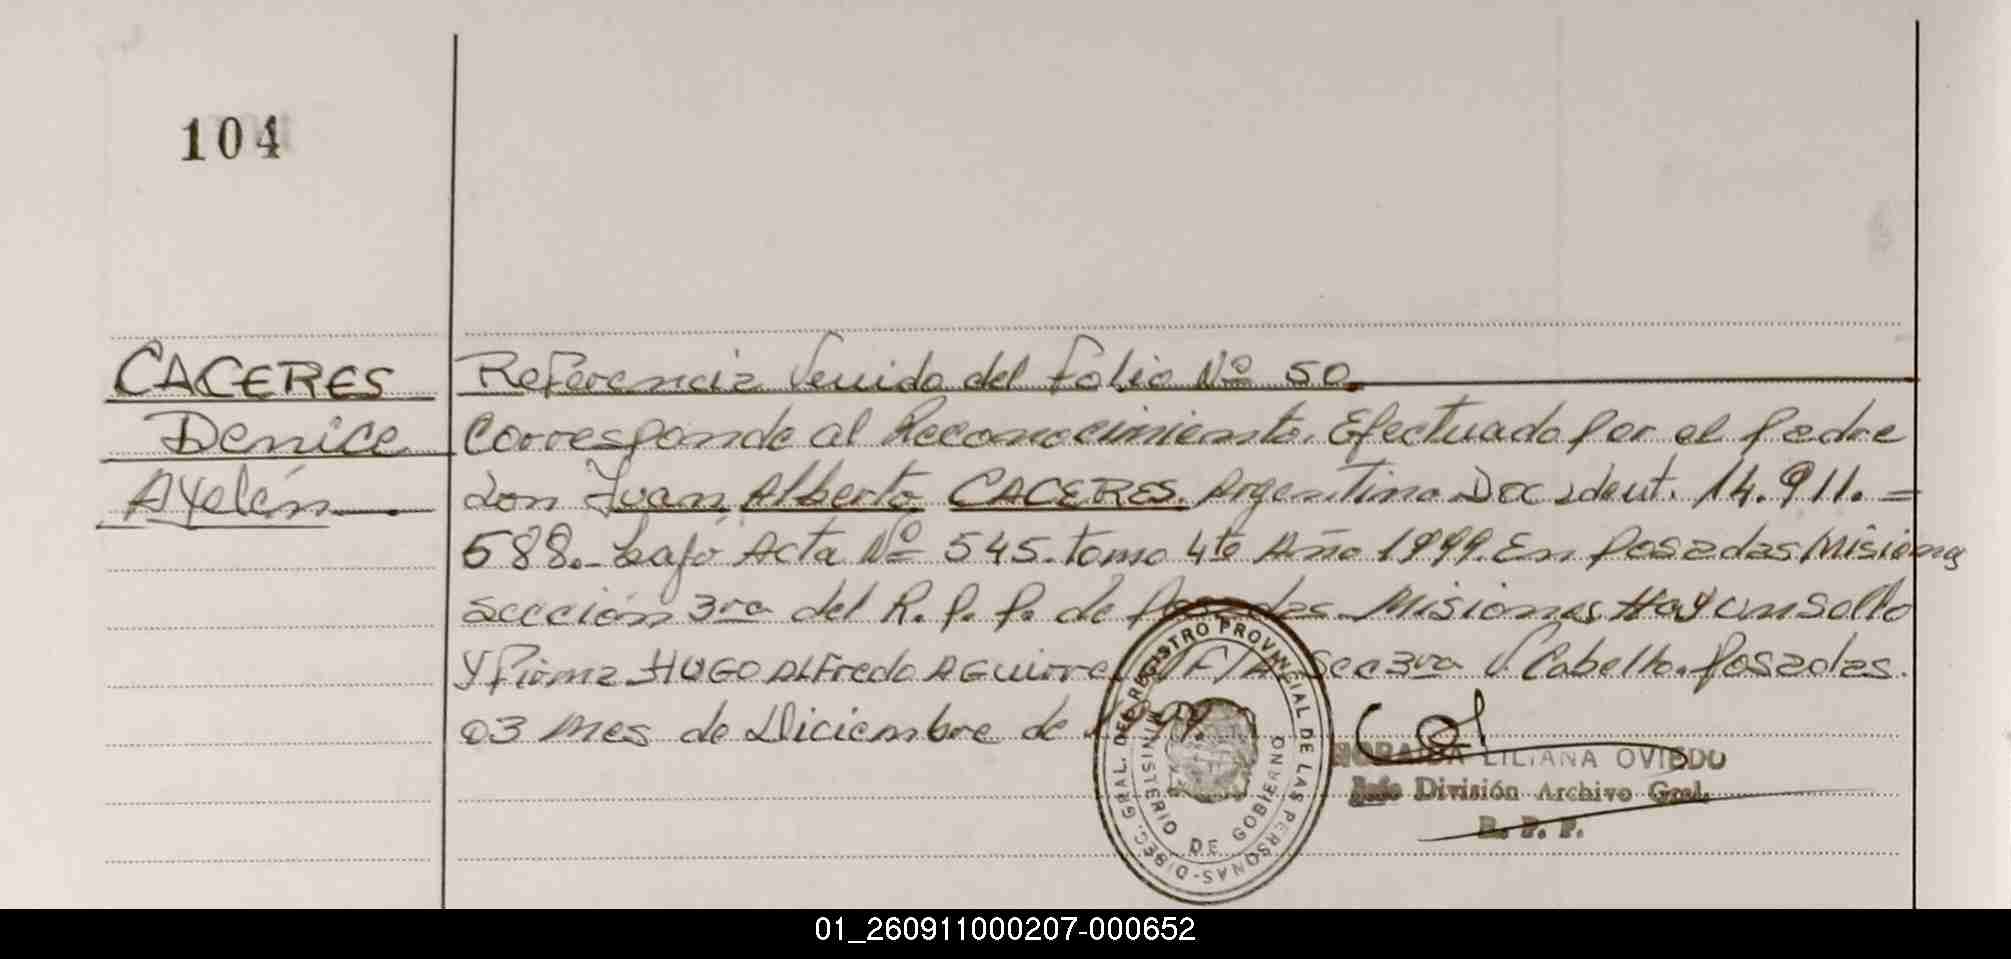 104
CACERES
Denice
Ayelén
Referencia Venida del folio Nº 50.
Corresponde al Reconocimiento. Efectuado por el padre
don Juan Alberto CACERES. Argentino Doc ident. 14.911.=
588.- bajo Acta Nº 545. tomo 4to Año 1999. En Posadas Misiones
sección 3ra del R. P. P. de Posadas Misiones Hay un sello
y firma HUGO Alfredo AGUirre Sec 3ra V. Cabello. Posadas.
03 mes de Diciembre de 1999.
DIREC. GRAL. DEL REGISTRO PROVINCIAL DE LAS PERSONAS
MINISTERIO DE GOBIERNO
LILIANA OVIEDO
Jefe División Archivo Gral.
R. P. P.
01_260911000207-000652